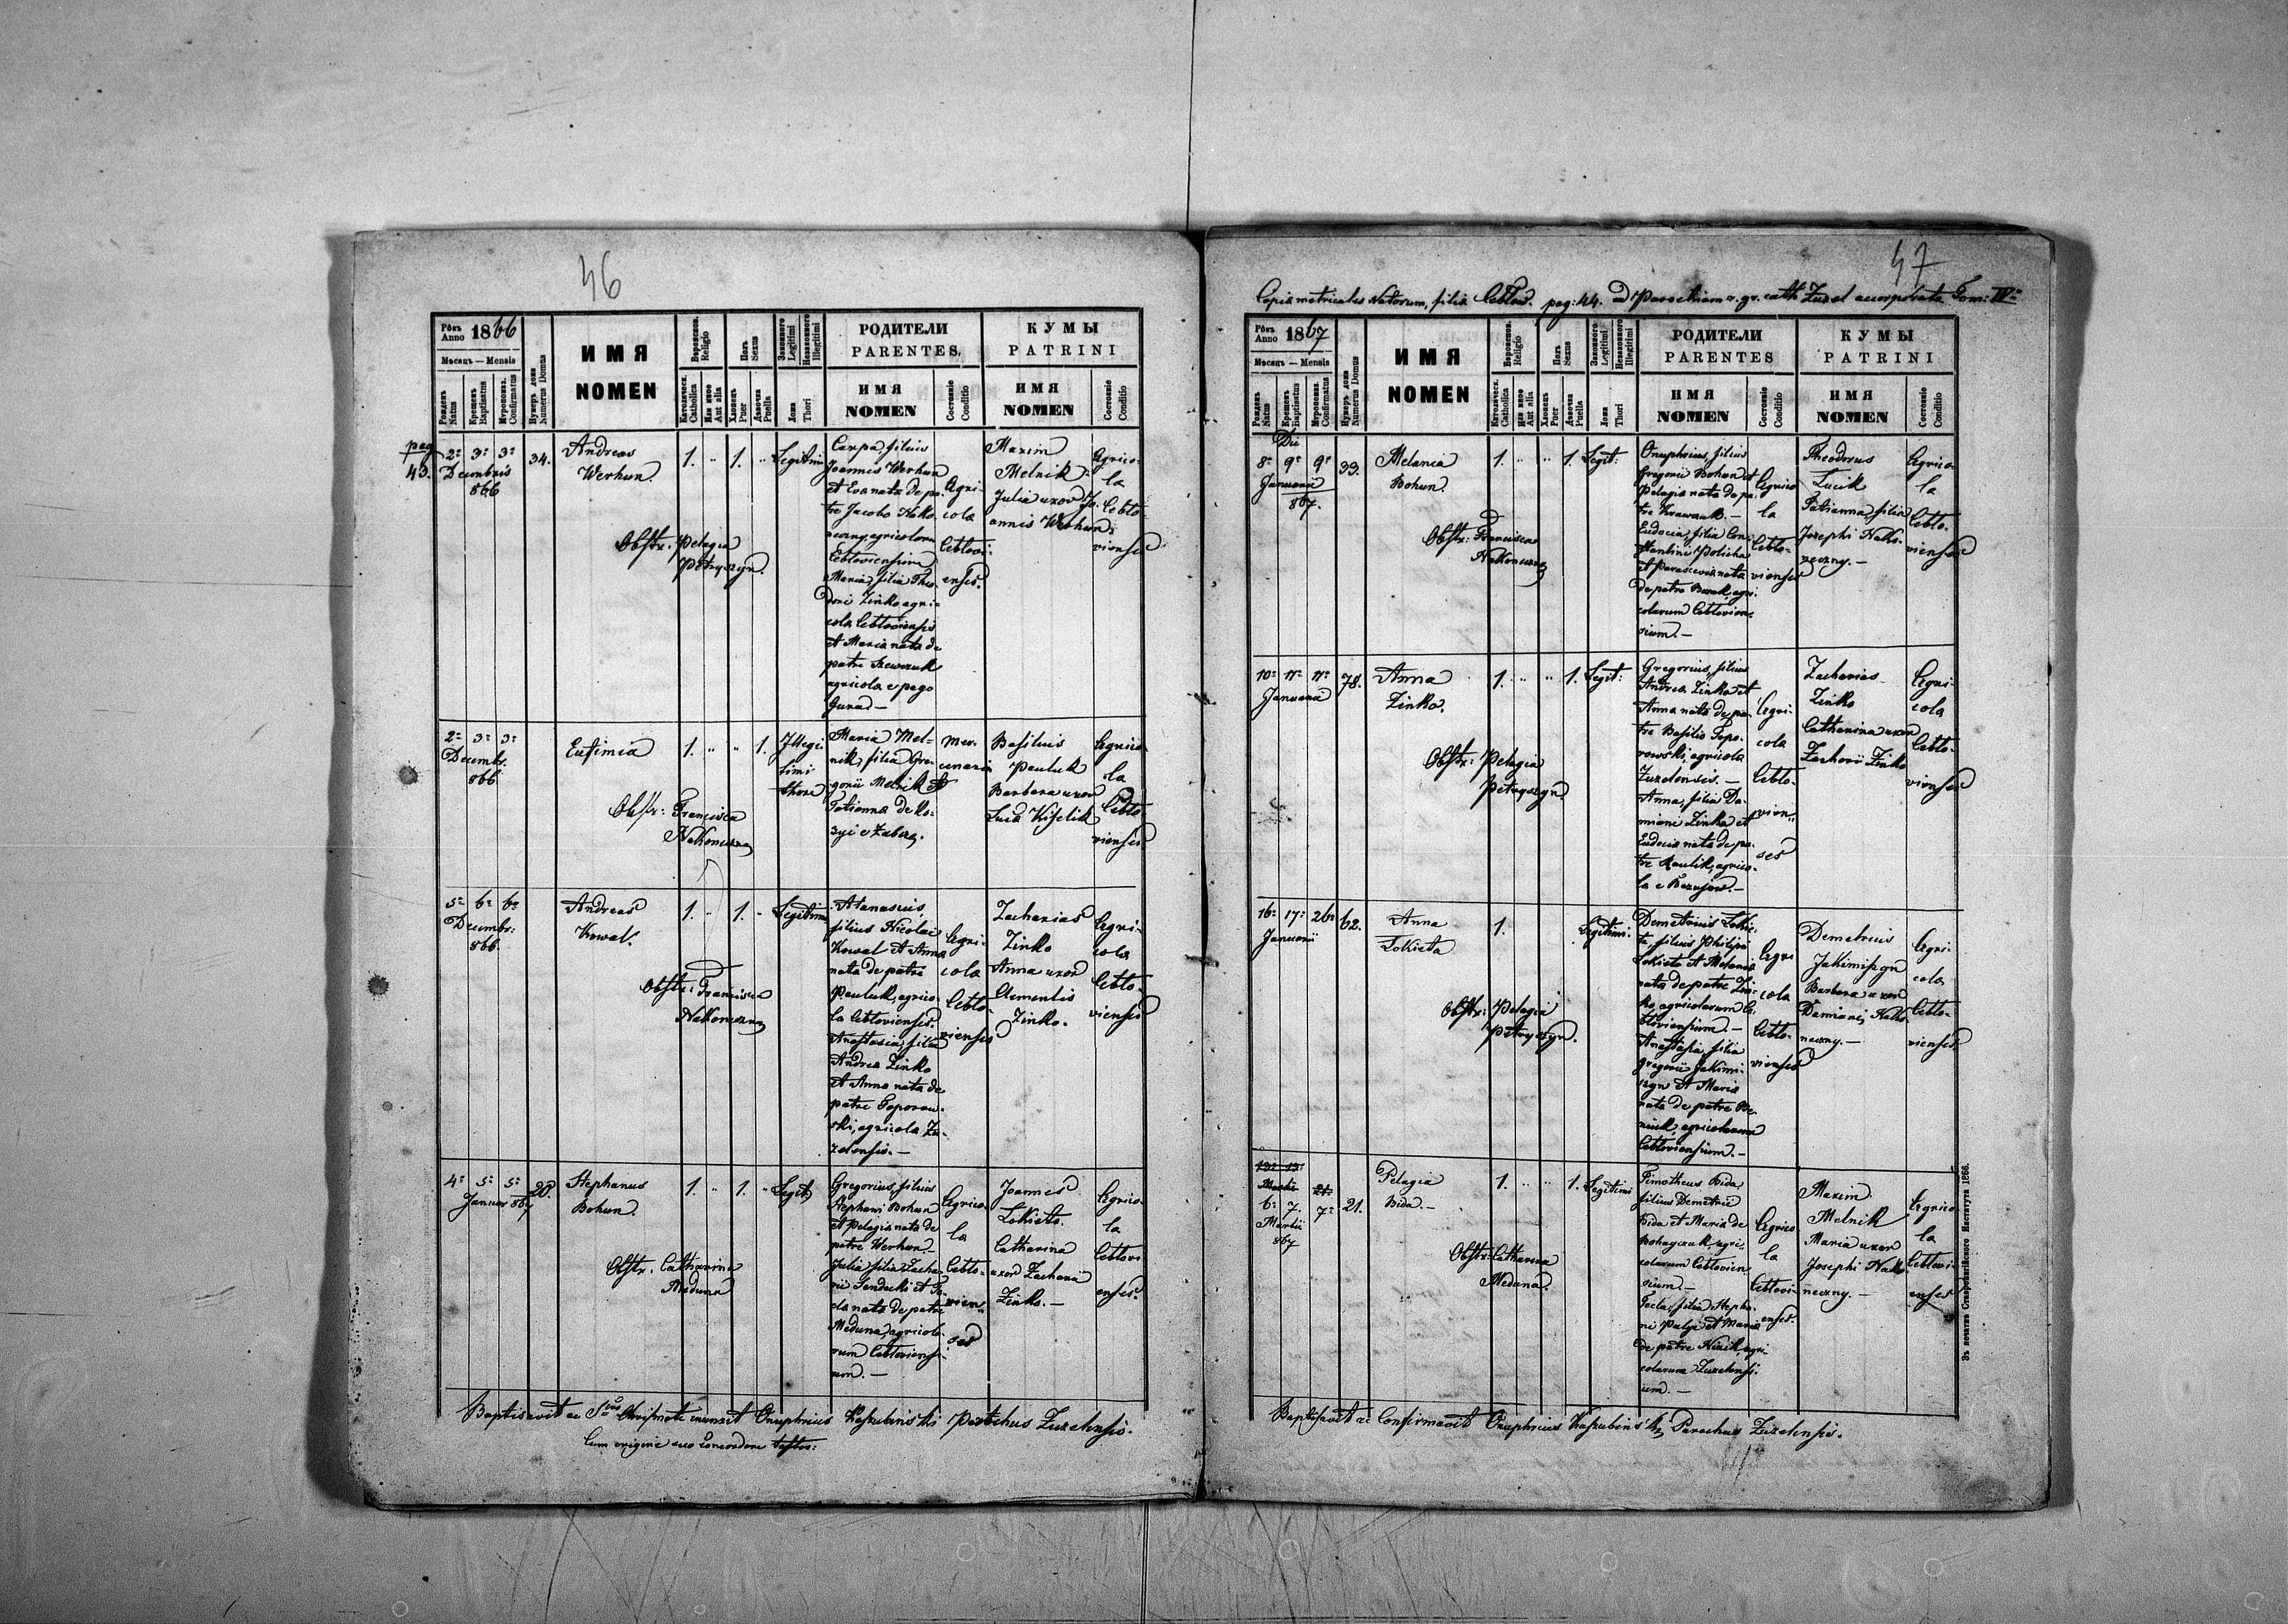 46
Рôкъ Anno 1866
Мѣсяцъ — Mensis
Рожденъ Natus
Крещенъ Baptisatus
Мѵропомаз. Confirmatus
Нумеръ дома Numerus Domus
ИМЯ
NOMEN
Вѣроиспов. Religio
Католическ. Catholica
Или иное Aut alia
Полъ Sexus
Хлопецъ Puer
Дѣвочка Puella
Законного Legitimi
Незаконного Illegitimi
Ложа Thori
РОДИТЕЛИ
PARENTES.
ИМЯ
NOMEN
Состояніе Conditio
КУМЫ
PATRINI
ИМЯ
NOMEN
Состояніе Conditio
pag
43.
2a 3a 3a
Decembris
866
34.
Andreas
Werhun.
Obstr: Pelagia
Petryszyn.
1. " 1. "
Legitimi
Carpa, filius
Joannis Werhun
et Eva nata de pa-
tre Jacobo Nako-
neczny agricolarum
Cebloviensium
Maria, filia Theo-
dori Zinko agri-
cola Cebloviensis
et Maria nata de
patre Szewczuk
agricola e pago
Agri-
cola
Ceblovi-
enses.
Maxim
Melnik
Julia uxor Jo-
annis Werhun
Agrico-
la
Ceblo-
vienses
2a 3a 3a
Decembr.
866
Eufimia
Obstr: Francisca
Nakoneczna
1. " " 1.
Illegi-
timi
thori
Maria Mel-
nik, filia Gre-
gorii Melnik et
Tatianna de Ko-
Basilius
Pauluk
Barbara uxor
Luca Kiselik
Agrico-
la
Ceblo-
vienses
5a 6a 6a
Decembr:
866
Andreas
Kowal.
Obstr: Francisca
Nakoneczna
1. " 1. "
Legitimi
Atanasius,
filius Nicolai
Kowal et Anna
nata de patre
Pauluk, agrico-
la Cebloviensis.
Anastasia, filia
Andrea Zinko
et Anna nata de
patre Toporow-
ski, agricola Zu-
zelensis. —
Agri-
cola
Ceblo-
vienses
Zacharias
Zinko
Anna uxor
Clementis
Zinko.
Agri-
cola
Ceblo-
vienses
4a 5a 5a
Januar 867
20.
Stephanus
Bohun.
Obstr. Catharina
Meduna
1. " 1. "
Legit
Gregorius, filius
Stephani Bohun
et Pelagia nata de
patre Werhun. —
Julia filia Zacha-
rii Senducki et Te-
cla nata de patre
Meduna, agricola-
rum Cebloviensi-
um. —
Agrico-
la
Ceblo-
vien-
ses
Joannes
Lokieta.
Catharina
uxor Zacharii
Zinko. —
Agrico-
la
Ceblovi-
enses.
Baptisavit ac Sto Chrismate inunxit Onuphrius Kaszubinski Parochus Zuzelensis.
Cum origine suo concordare testor:
47
Copia metricales Natorum, filia Ceblow. pag: 44. ad Parochiam r. gr. cath Zuzel accorporata Tom: IVa
Рôкъ Anno 1867
Мѣсяцъ — Mensis
Рожденъ Natus
Крещенъ Baptisatus
Мѵропомаз. Confirmatus
Нумеръ дома Numerus Domus
ИМЯ
NOMEN
Вѣроиспов. Religio
Католическ. Catholica
Или иное Aut alia
Полъ Sexus
Хлопецъ Puer
Дѣвочка Puella
Законного Legitimi
Незаконного Illegitimi
Ложа Thori
РОДИТЕЛИ
PARENTES
ИМЯ
NOMEN
Состояніе Conditio
КУМЫ
PATRINI
ИМЯ
NOMEN
Состояніе Conditio
Die
8a 9a 9a
Januarii
867.
39.
Melania
Bohun.
Obstr: Francisca
Nakoneczna
1. " " 1.
Legit:
Onuphrius, filius
Gregorii Bohun et
Pelagia nata de pa-
tre Krawczuk. —
Eudocia, filia Con-
stantini Policha
et Parascevia nata
de patre Bozak, agri-
colarumCeblovien-
sium. —
Agrico-
la
Ceblo-
vienses
Theodorus
Lucik
Tatianna, filia
Josephi Nako-
neczny. —
Agrico-
la
Ceblo-
vienses
10a 11a 11a
Januarii
78.
Anna
Zinko.
Obstr: Pelagia
Petryszyn.
1. " " 1.
Legit:
Gregorius, filius
Andrea Zinko et
Anna nata de pa-
tre Basilio Topo-
rowski, agricola
Zuzelensis. —
Anna, filia Da-
miani Zinko et
Eudocia nata de pa-
tre Raulik, agrico-
la e
Agri-
cola
Ceblo-
vien-
ses
Zacharias
Zinko
Catharina uxor
Zacharii Zinko
Agri-
cola
Ceblo-
vienses
16a 17a 26a
Januarii
62.
Anna
Lokieta
Obstr: Pelagia
Petryszyn.
1.
Legitimi
Demetrius Lokie-
ta, filius Philippi
Lokieta et Melania
nata de patre Zin-
ko, agricolarum Ce-
bloviensium. —
Anastasia, filia
Gregorii Jakimi-
szyn et Maria
nata de patre
agricolarum
Cebloviensium. —
Agri-
cola
Ceblo-
vienses
Demetrius
Jakimiszyn
Barbara uxor
Damiani Nako-
neczny. —
Agri-
cola
Ceblo-
vienses.
12a 13a
Martii
21.
6a 7. 7a
Martii
867
21.
Pelagia
Bida. —
Obstr: Catharina
Meduna.
1. " " 1.
Legitimi
Timotheus Bida,
filius Demetrii
Bida et Maria de
Bohayczuk, agri-
colarum Ceblovien-
sium. —
Tecla, filia Stepha-
ni Palyi et Maria
de patre Hizik, agri-
colarum Zuzelensi-
um. —
Agrico-
la
Ceblovi-
enses.
Maxim
Melnik
Maria uxor
Josephi Nako-
neczny. —
Agrico-
la
Ceblovi-
enses
Baptisavit ac Confirmavit Onuphrius Kaszubinski, Parochus Zuzelensis.
Зъ печатнѣ Ставропигійского Института 1866.